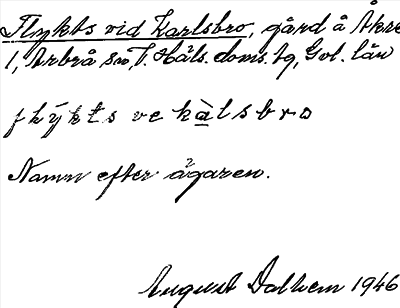 Flykts vid Karlsbro, gård å Åkre
1, Arbrå sn, V. Häls. doms. tg, Gvl. län
flýkts ve kàlsbro
Namn efter ägaren.
August Dalhem 1946